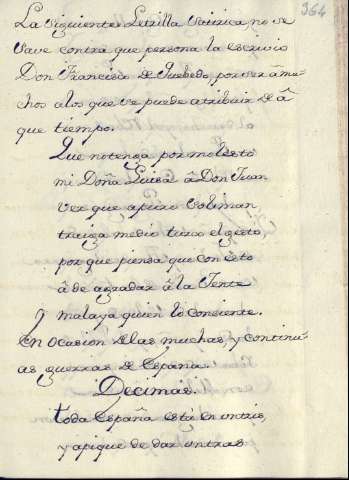 364
La Siguiente Letrilla Satirica, no se
save contra que persona la escrivio
Don Francisco de Quebedo, por ser â mu-
chos alos que se puede atribuir de â
que tiempo.
Que no tenga por molesto
mi Doña Luisa â Don Juan
ver que apuro soliman
traiga medio el gesto
por que piensa que con esto
â de agradar â la Jente
mal aya quien lo consiente.
En ocasion de las muchas, y continu-
as guerras de España.
Decimas.
toda España está en
y apique de dar